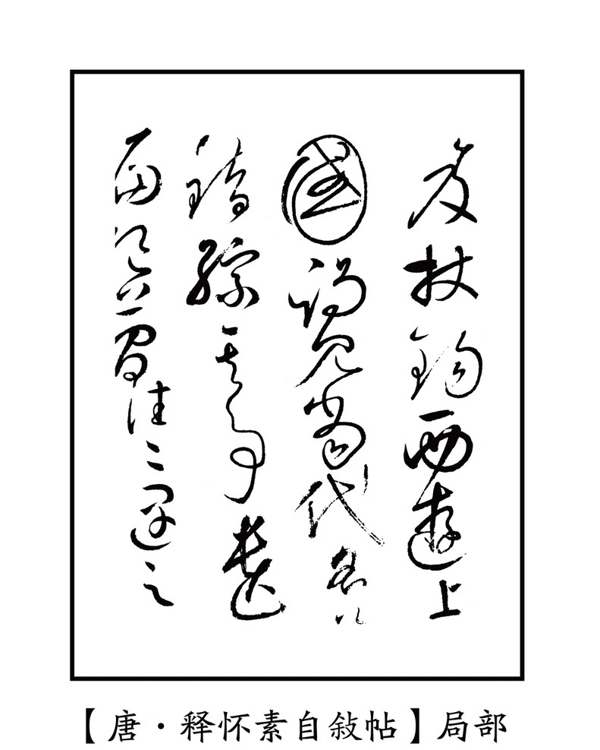 笈杖錫西遊上
國謁見當代名公
錯綜其事遺
編絕簡往〻遇之
【唐·释怀素自敍帖】局部